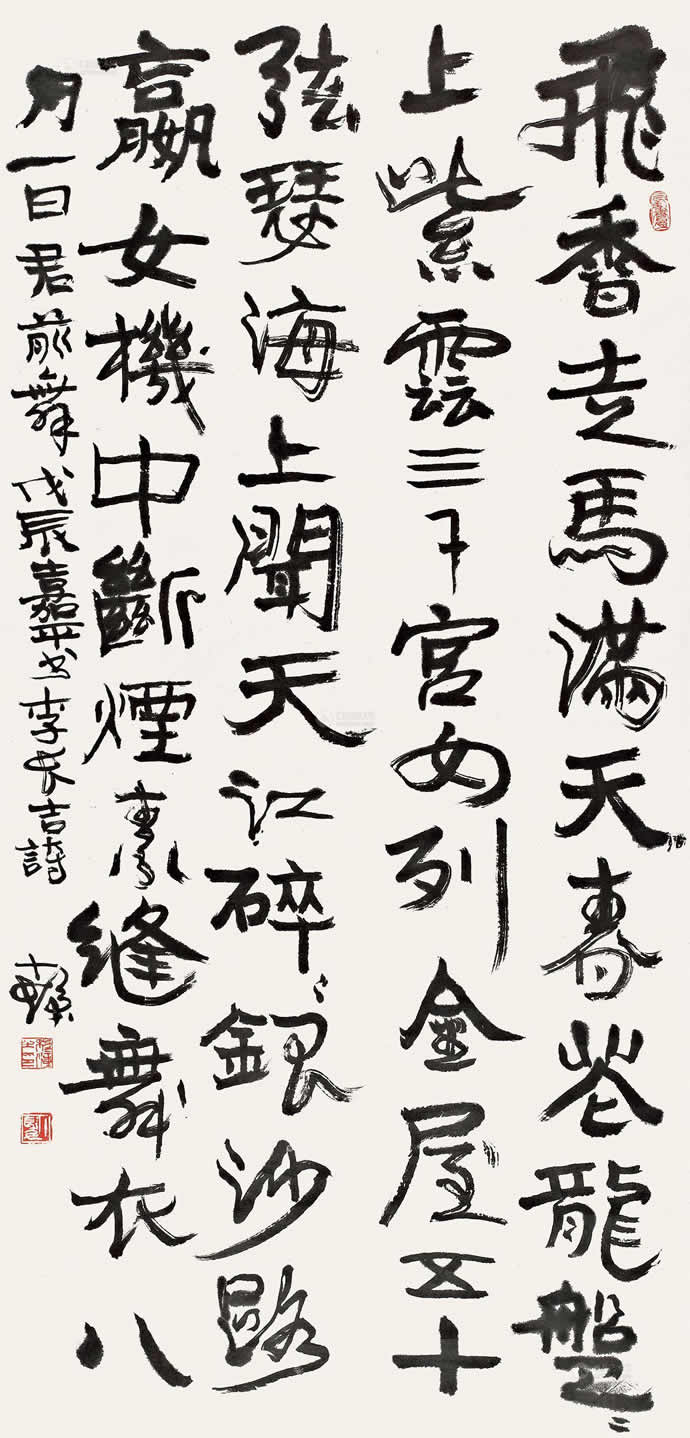 飛香走馬滿天春花龍盤〻
上紫雲三千宮女列金屋五十
弦瑟海上聞天江碎〻銀沙路
嬴女機中斷煙素縫舞衣八
月一日君前舞戊辰嘉平書李長吉詩